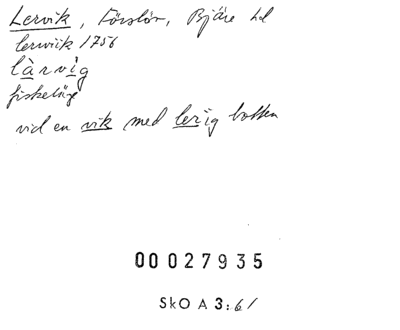 Lervik, Förslöv, Bjäre hd
lerwiik 1756
làrvìg
fiskeläge
vid en vik med lerig botten
00 027935
SkO A 3:61